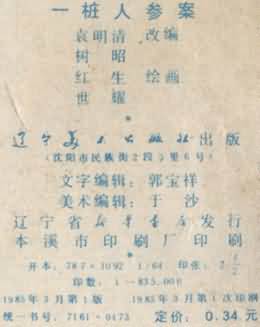 一桩人参案
袁明清 改编
树 昭
红 生 绘画
世 耀
辽宁美术出版社出版
(沈阳市民族街2段3里6号)
文字编辑: 郭宝祥
美术编辑: 于 沙
辽宁省新华书店发行
本溪市印刷厂印刷
开本: 787×1092 1/64 印张: 2 1/2
印数: 1—835,000
1985年3月第1版 1985年3月第1次印刷
统一书号: 7161·0473 定价: 0.34元